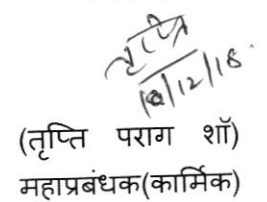 तृप्ति
18/12/18.
(तृप्ति पराग शॉ)
महाप्रबंधक(कार्मिक)